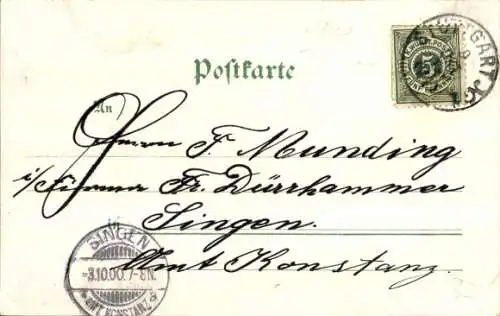 STUTTGART
5
Postkarte
An
Herrn F. Munding
i/ Firma Fr. Dürrhammer
Singen.
Amt Konstanz.
SINGEN
-3.10.00.7-8N.
AMT KONSTANZ